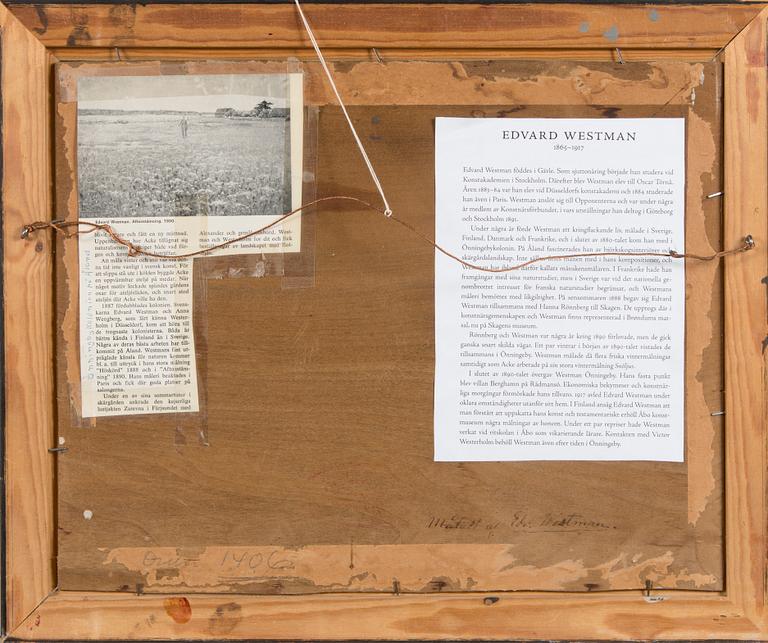 Edvard Westman. Aftonstämning. 1890.
och fått en ny mittnod.
har Acke tillägnat sig
Att måla vinter och snö var vid den-
na tid inte vanligt i svensk konst. För
att slippa stå ute i kölden byggde Acke
en uppvärmbar ateljé på medar. När
något motiv lockade spändes gårdens
oxar för ateljésläden, och snart stod
ateljén där Acke ville ha den.
1887 fördubblades kolonien. Svens-
karna Edvard Westman och Anna
Wengberg, som lärt känna Wester-
holm i Düsseldorf, kom att höra till
de trognaste kolonisterna. Båda är
härtro kända i Finland än i Sverige.
Några av deras bästa arbeten har till-
kommit på Åland. Westmans fint ut-
präglade känsla för naturen kommer
bl. a. till uttryck i hans stora målning
"Höskörd" 1888 och i "Aftonstäm-
ning" 1890. Hans måleri beaktades i
Paris och fick där goda platser på
salongerna.
Under en av sina sommarturer i
skärgården ankrade den kejserliga
lustjakten Zarevna i Färjsundet med
Alexander och
man och för det och fick
av landskapet
EDVARD WESTMAN
1865–1917
Edvard Westman föddes i Gävle. Som sjuttonåring började han studera vid
Konstakademien i Stockholm. Därefter blev Westman elev till Oscar Törnå.
Åren 1883–84 var han elev vid Düsseldorfs konstakademi och 1884 studerade
han även i Paris. Westman anslöt sig till Opponenterna och var under några
år medlem av Konstnärsförbundet, i vars utställningar han deltog i Göteborg
och Stockholm 1891.
Under några år förde Westman ett kringflackande liv, målade i Sverige,
Finland, Danmark och Frankrike, och i slutet av 1880-talet kom han med i
Önningebykolonin. På Åland fascinerades han av björkskogsinteriörer och
skärgårdslandskap. Inte sällan finns männen med i hans kompositioner, och
Westman har blivit därför kallats människomålaren. I Frankrike hade han
framgångar med sina naturstudier, men i Sverige var vid det nationella ge-
nombrottet intresset för franska naturstudier begränsat, och Westmans
måleri bemöttes med likgiltighet. På sensommaren 1888 begav sig Edvard
Westman tillsammans med Hanna Rönnberg till Skagen. De upptogs där i
konstnärsgemenskapen och Westman finns representerad i Brøndums mat-
sal, nu på Skagens museum.
Rönnberg och Westman var några år kring 1890 förlovade, men de gick
ganska snart skilda vägar. Ett par vintrar i början av 1890-talet vistades de
tillsammans i Önningeby. Westman målade då flera friska vintermålningar
samtidigt som Acke arbetade på sin stora vintermålning Snöljus.
I slutet av 1890-talet övergav Westman Önningeby. Hans fasta punkt
blev villan Berghamn på Rådmansö. Ekonomiska bekymmer och konstnär-
liga motgångar förmörkade hans tillvaro. 1917 avled Edvard Westman under
oklara omständigheter utanför sitt hem. I Finland ansåg Edvard Westman att
man förstått att uppskatta hans konst och testamentariskt erhöll Åbo konst-
museum några målningar av honom. Under ett par repriser hade Westman
verkat vid ritskolan i Åbo som vikarierande lärare. Kontakten med Victor
Westerholm behöll Westman även efter tiden i Önningeby.
Målat av Edv. Westman.
1906